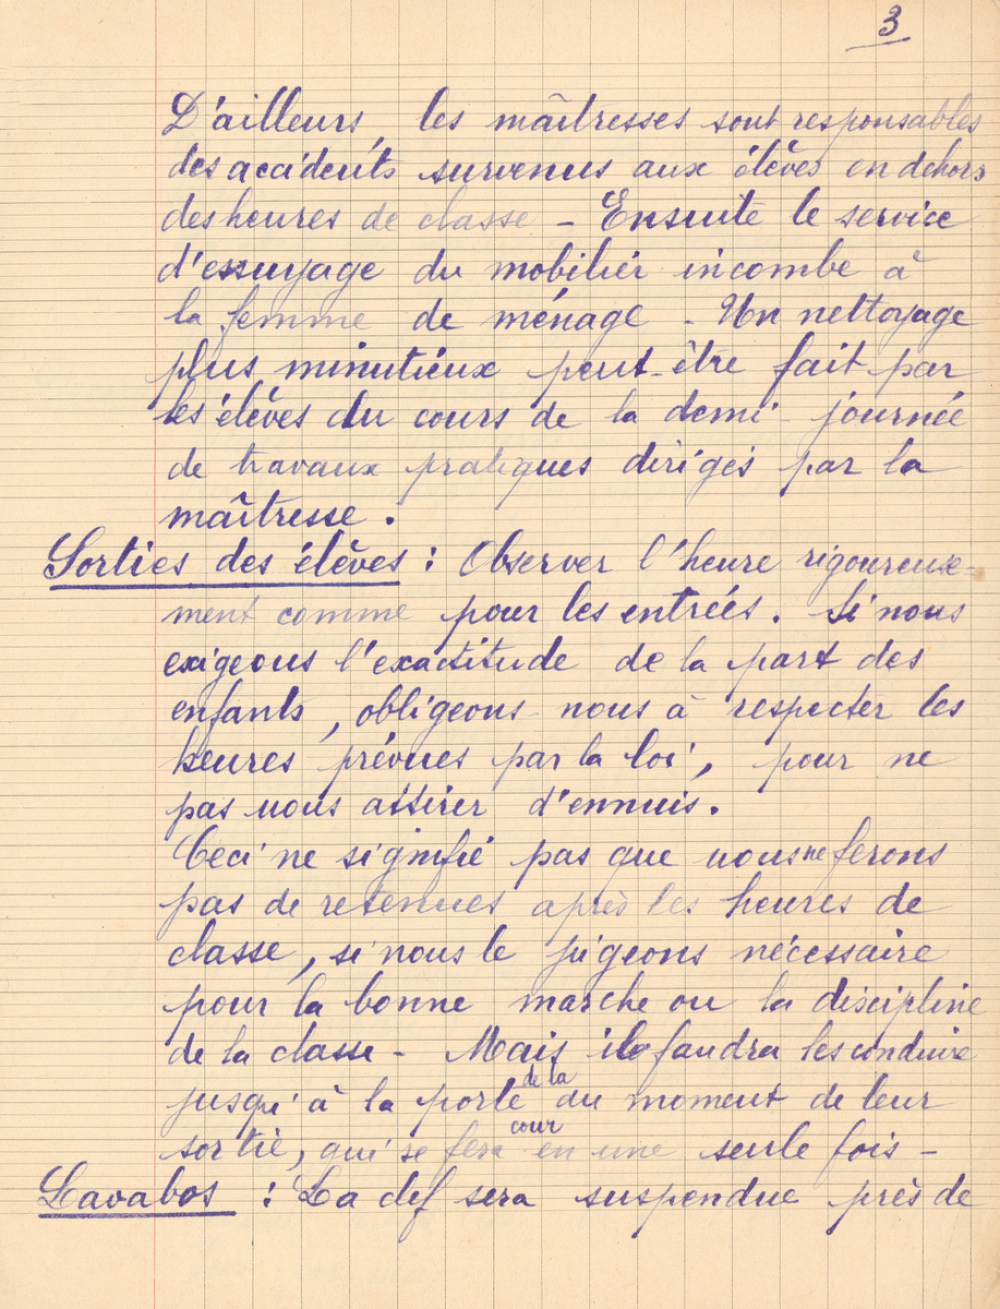 3
D'ailleurs, les maîtresses sont responsables
des accidents survenus aux élèves en dehors
des heures de classe - Ensuite le service
d'essuyage du mobilier incombe à
la femme de ménage - Un nettoyage
plus minutieux peut-être fait par
les élèves du cours de la demi-journée
de travaux pratiques dirigés par la
maîtresse.
Sorties des élèves : Observer l'heure rigoureuse-
ment comme pour les entrées. Si nous
exigeons l'exactitude de la part des
enfants, obligeons-nous à respecter les
heures prévues par la loi, pour ne
pas nous attirer d'ennuis.
Ceci ne signifie pas que nous ne ferons
pas de retenues après les heures de
classe, si nous le jugeons nécessaire
pour la bonne marche ou la discipline
de la classe - Mais il faudra les conduire
jusqu'à la porte de la cour au moment de leur
sortie, qui se fera en une seule fois -
Lavabos : La clef sera suspendue près de